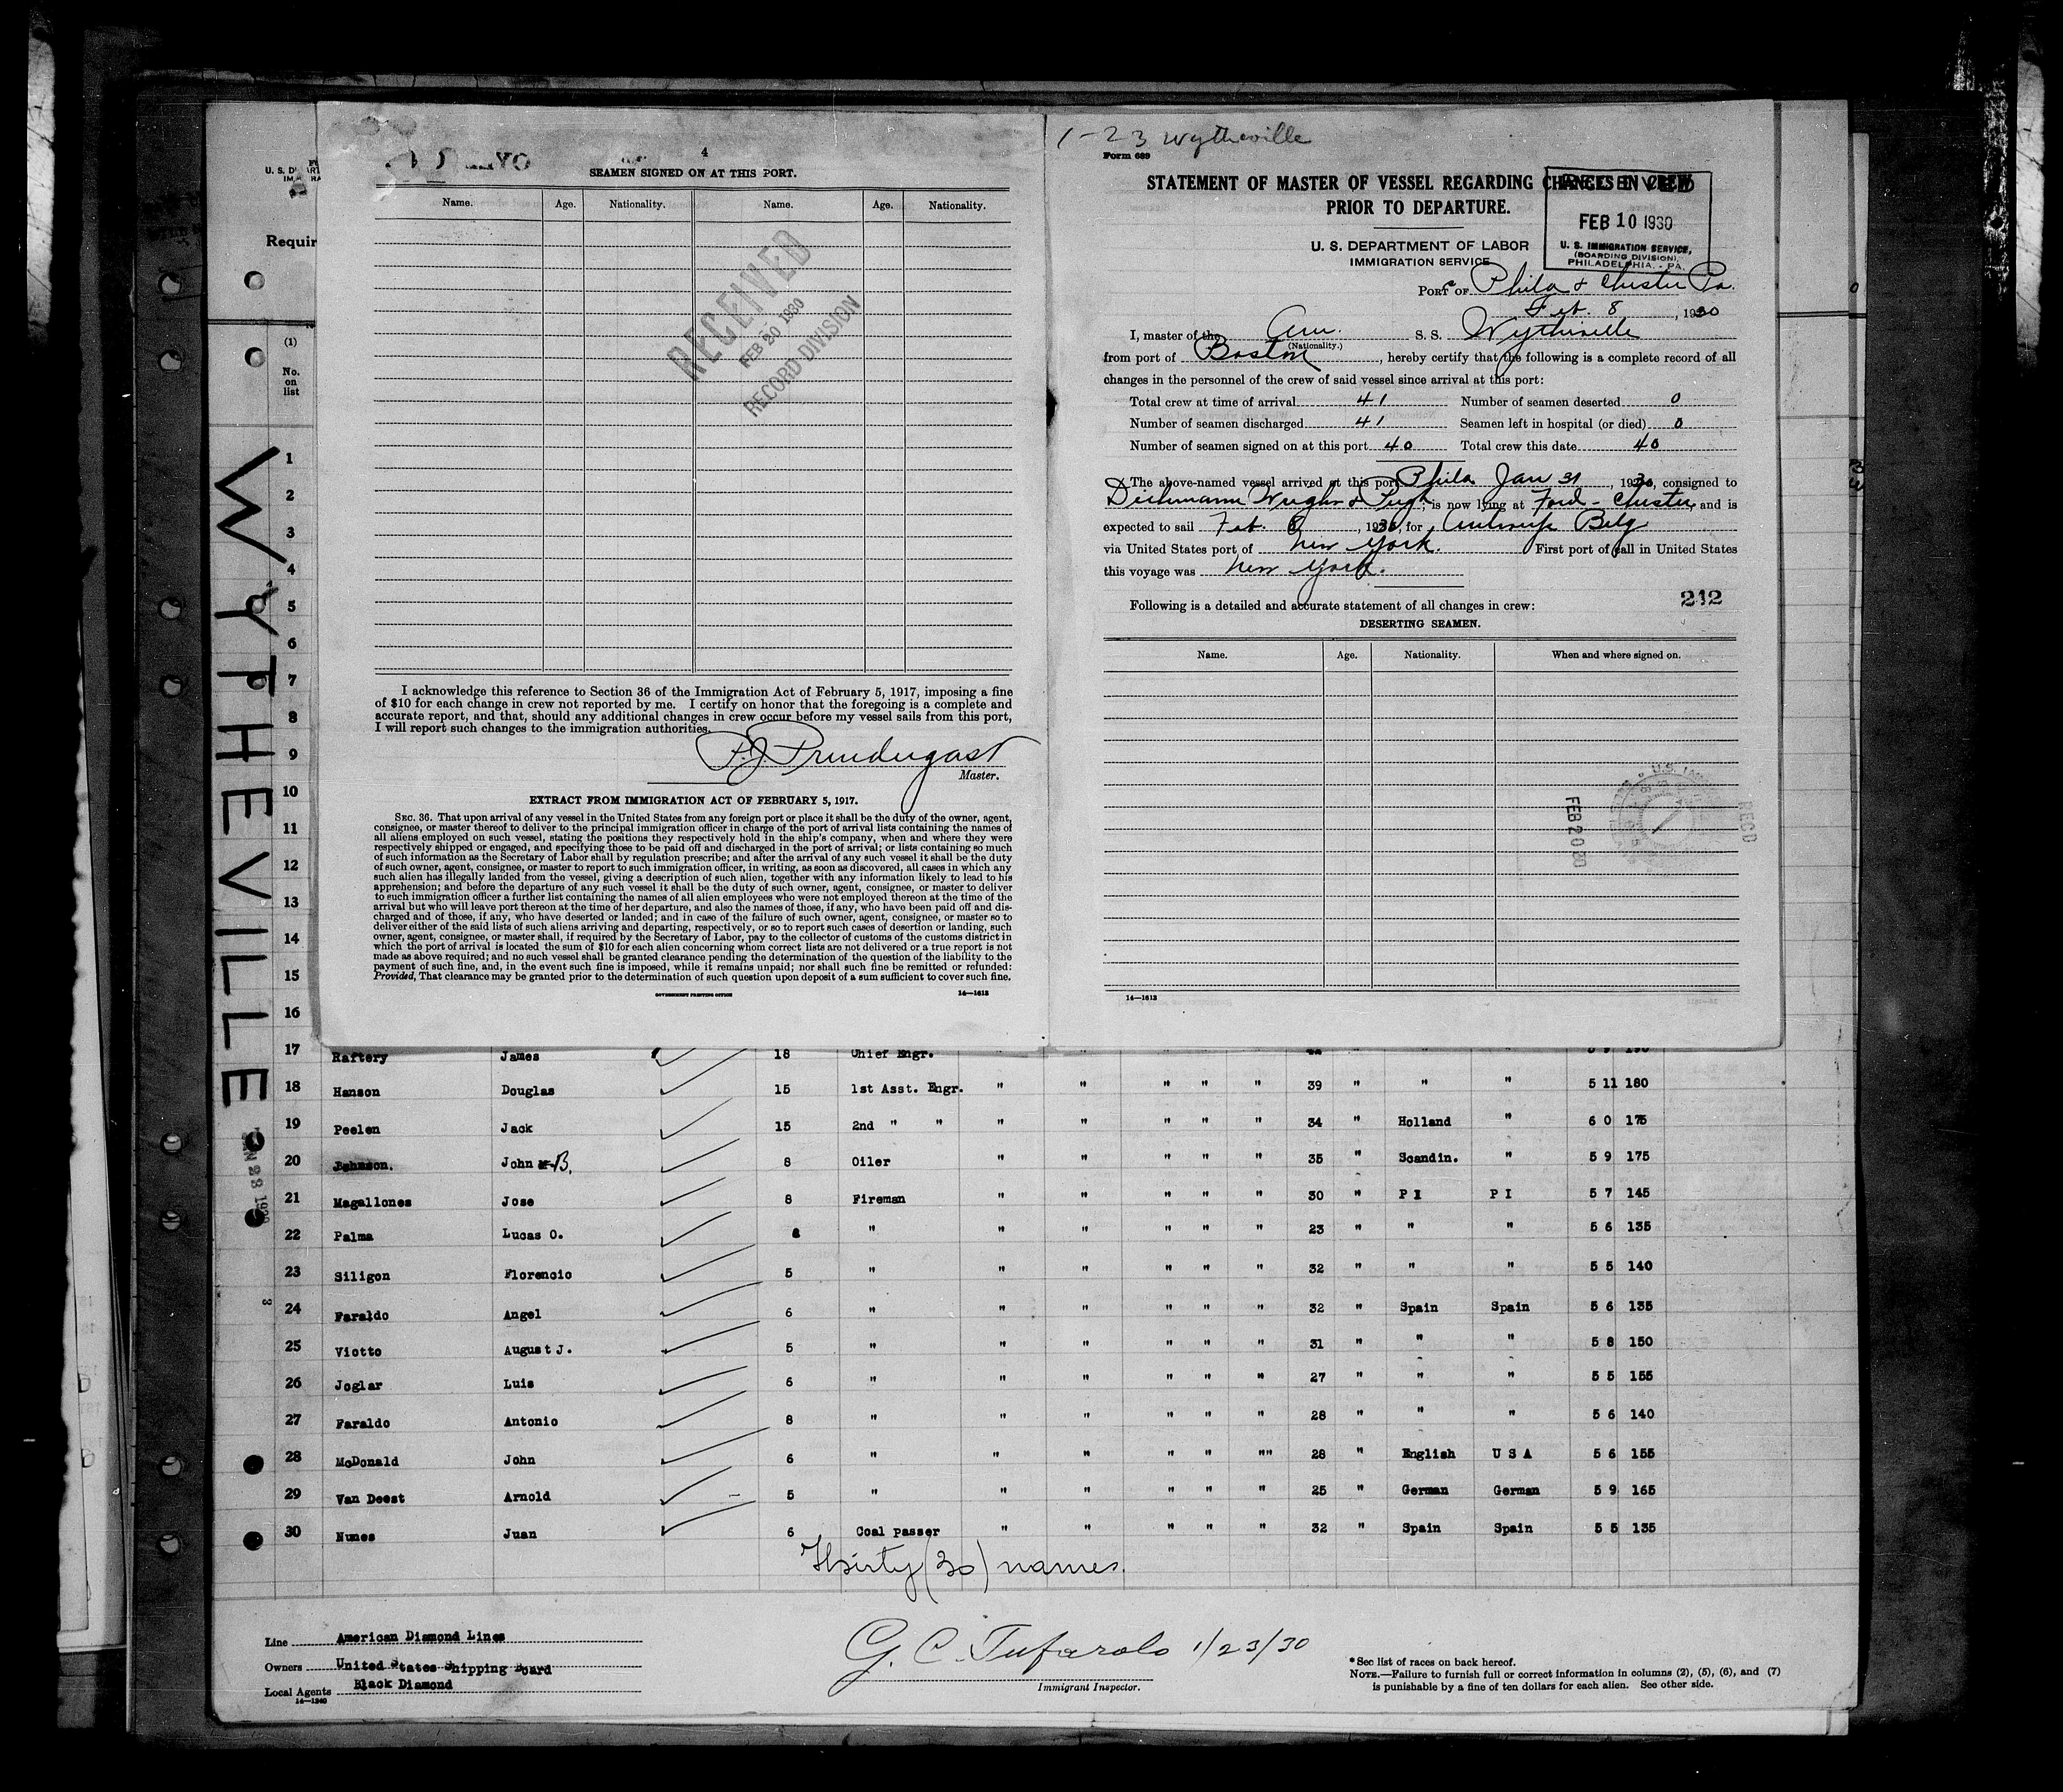 4
SEAMEN SIGNED ON AT THIS PORT.
Name. Age. Nationality. Name. Age. Nationality.
RECEIVED
FEB 20 1930
RECORD DIVISION
I acknowledge this reference to Section 36 of the Immigration Act of February 5, 1917, imposing a fine
of $10 for each change in crew not reported by me. I certify on honor that the foregoing is a complete and
accurate report, and that, should any additional changes in crew occur before my vessel sails from this port,
I will report such changes to the immigration authorities.
P.J. Prendergast
Master.
EXTRACT FROM IMMIGRATION ACT OF FEBRUARY 5, 1917.
SEC. 36. That upon arrival of any vessel in the United States from any foreign port or place it shall be the duty of the owner, agent,
consignee, or master thereof to deliver to the principal immigration officer in charge of the port of arrival lists containing the names of
all aliens employed on such vessel, stating the positions they respectively hold in the ship's company, when and where they were
respectively shipped or engaged, and specifying those to be paid off and discharged in the port of arrival; or lists containing so much
of such information as the Secretary of Labor shall by regulation prescribe; and after the arrival of any such vessel it shall be the duty
of such owner, agent, consignee, or master to report to such immigration officer, in writing, as soon as discovered, all cases in which any
such alien has illegally landed from the vessel, giving a description of such alien, together with any information likely to lead to his
apprehension; and before the departure of any such vessel it shall be the duty of such owner, agent, consignee, or master to deliver
to such immigration officer a further list containing the names of all alien employees who were not employed thereon at the time of the
arrival but who will leave port thereon at the time of her departure, and also the names of those, if any, who have been paid off and dis-
charged and of those, if any, who have deserted or landed; and in case of the failure of such owner, agent, consignee, or master so to
deliver either of the said lists of such aliens arriving and departing, respectively, or so to report such cases of desertion or landing, such
owner, agent, consignee, or master shall, if required by the Secretary of Labor, pay to the collector of customs of the customs district in
which the port of arrival is located the sum of $10 for each alien concerning whom correct lists are not delivered or a true report is not
made as above required; and no such vessel shall be granted clearance pending the determination of the question of the liability to the
payment of such fine, and, in the event such fine is imposed, while it remains unpaid; nor shall such fine be remitted or refunded:
Provided, That clearance may be granted prior to the determination of such question upon deposit of a sum sufficient to cover such fine.
GOVERNMENT PRINTING OFFICE 14—1613
1-23 Wytheville
Form 689
STATEMENT OF MASTER OF VESSEL REGARDING CHANGES IN CREW
PRIOR TO DEPARTURE.
U. S. DEPARTMENT OF LABOR
IMMIGRATION SERVICE
RECEIVED
FEB 10 1930
U. S. IMMIGRATION SERVICE,
(BOARDING DIVISION),
PHILADELPHIA, - PA.
PORT OF Phila & Chester Pa.
Feb. 8, 1930
I, master of the Am. S. S. Wytheville
(Nationality.)
from port of Boston, hereby certify that the following is a complete record of all
changes in the personnel of the crew of said vessel since arrival at this port:
Total crew at time of arrival 41 Number of seamen deserted 0
Number of seamen discharged 41 Seamen left in hospital (or died) 0
Number of seamen signed on at this port 40 Total crew this date 40
The above-named vessel arrived at this port Phila Jan 31, 1930, consigned to
Dichmann Wright & Pugh, is now lying at Ford - Chester, and is
expected to sail Feb. 8, 1930, for Antwerp Belg
via United States port of New York. First port of call in United States
this voyage was New York.
212
Following is a detailed and accurate statement of all changes in crew:
DESERTING SEAMEN.
Name. Age. Nationality. When and where signed on.
FEB 20 30
REC'D
14—1613
U. S. D
Requir
(1)
No.
on
list
WYTHEVILLE
1
2
3
4
5
6
7
8
9
10
11
12
13
14
15
16
17 Raftery James 18 Chief Engr.
18 Hanson Douglas 15 1st Asst. Engr. " " " " " 39 " " " 5 11 180
19 Peelen Jack 15 2nd " " " " " " " 34 " Holland " 6 0 175
20 Johnson. John B. 8 Oiler " " " " " 35 " Scandin. " 5 9 175
21 Magallones Jose 8 Fireman " " " " " 30 " P I P I 5 7 145
22 Palma Lucas O. " " " " " " 23 " " " 5 6 135
23 Siligon Florencio 5 " " " " " " 32 " " " 5 5 140
24 Faraldo Angel 6 " " " " " " 32 " Spain Spain 5 6 135
25 Viotto August J. 5 " " " " " " 31 " " " 5 8 150
26 Joglar Luis 6 " " " " " " 27 " " " 5 5 155
27 Faraldo Antonio 8 " " " " " " 28 " " " 5 6 140
28 McDonald John 6 " " " " " "" 28 " English U S A 5 6 155
29 Van Deest Arnold 5 " " " " " " 25 " German German 5 9 165
30 Nunes Juan 6 Coal passer " " " " " 32 " Spain Spain 5 5 135
Thirty (30) names.
Line American Diamond Lines
Owners United States Shipping Board
Local Agents Black Diamond
14—1240
G. C. Tufarolo 1/23/30
Immigrant Inspector.
* See list of races on back hereof.
NOTE.—Failure to furnish full or correct information in columns (2), (5), (6), and (7)
is punishable by a fine of ten dollars for each alien. See other side.